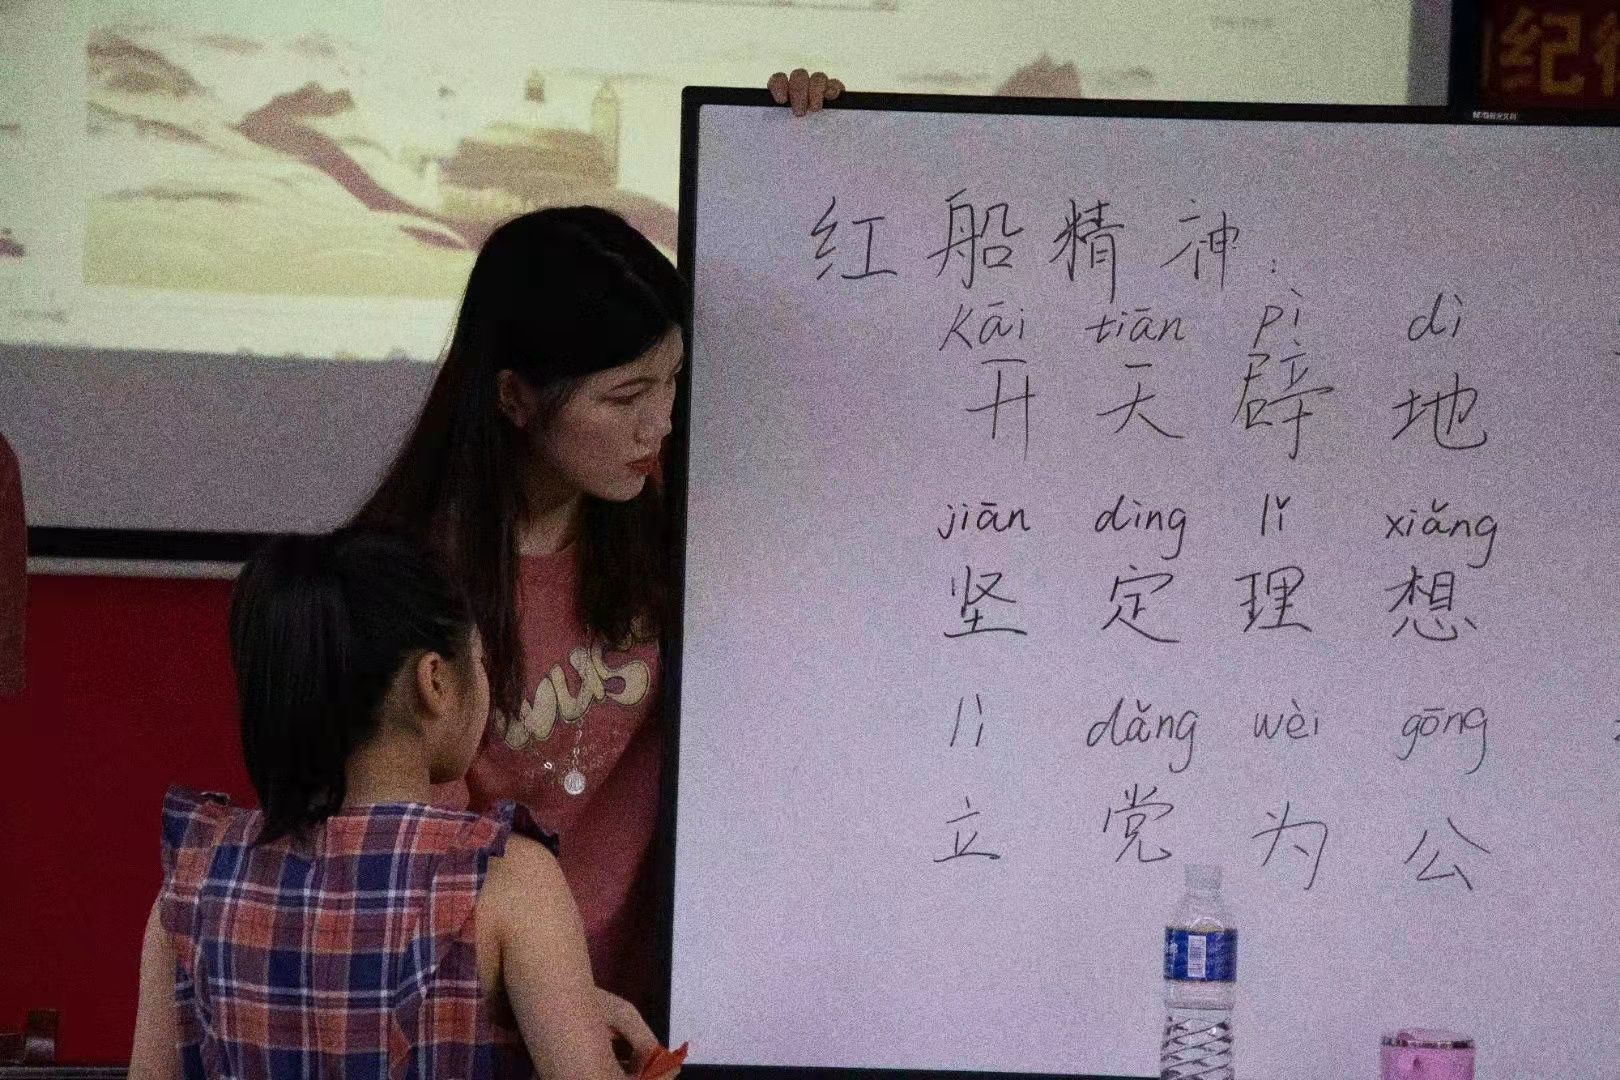 纪
红船精神:
Kāi tiān pì dì
开天辟地
jiān dìng lǐ xiǎng
坚定理想
lì dǎng wèi gōng
立党为公